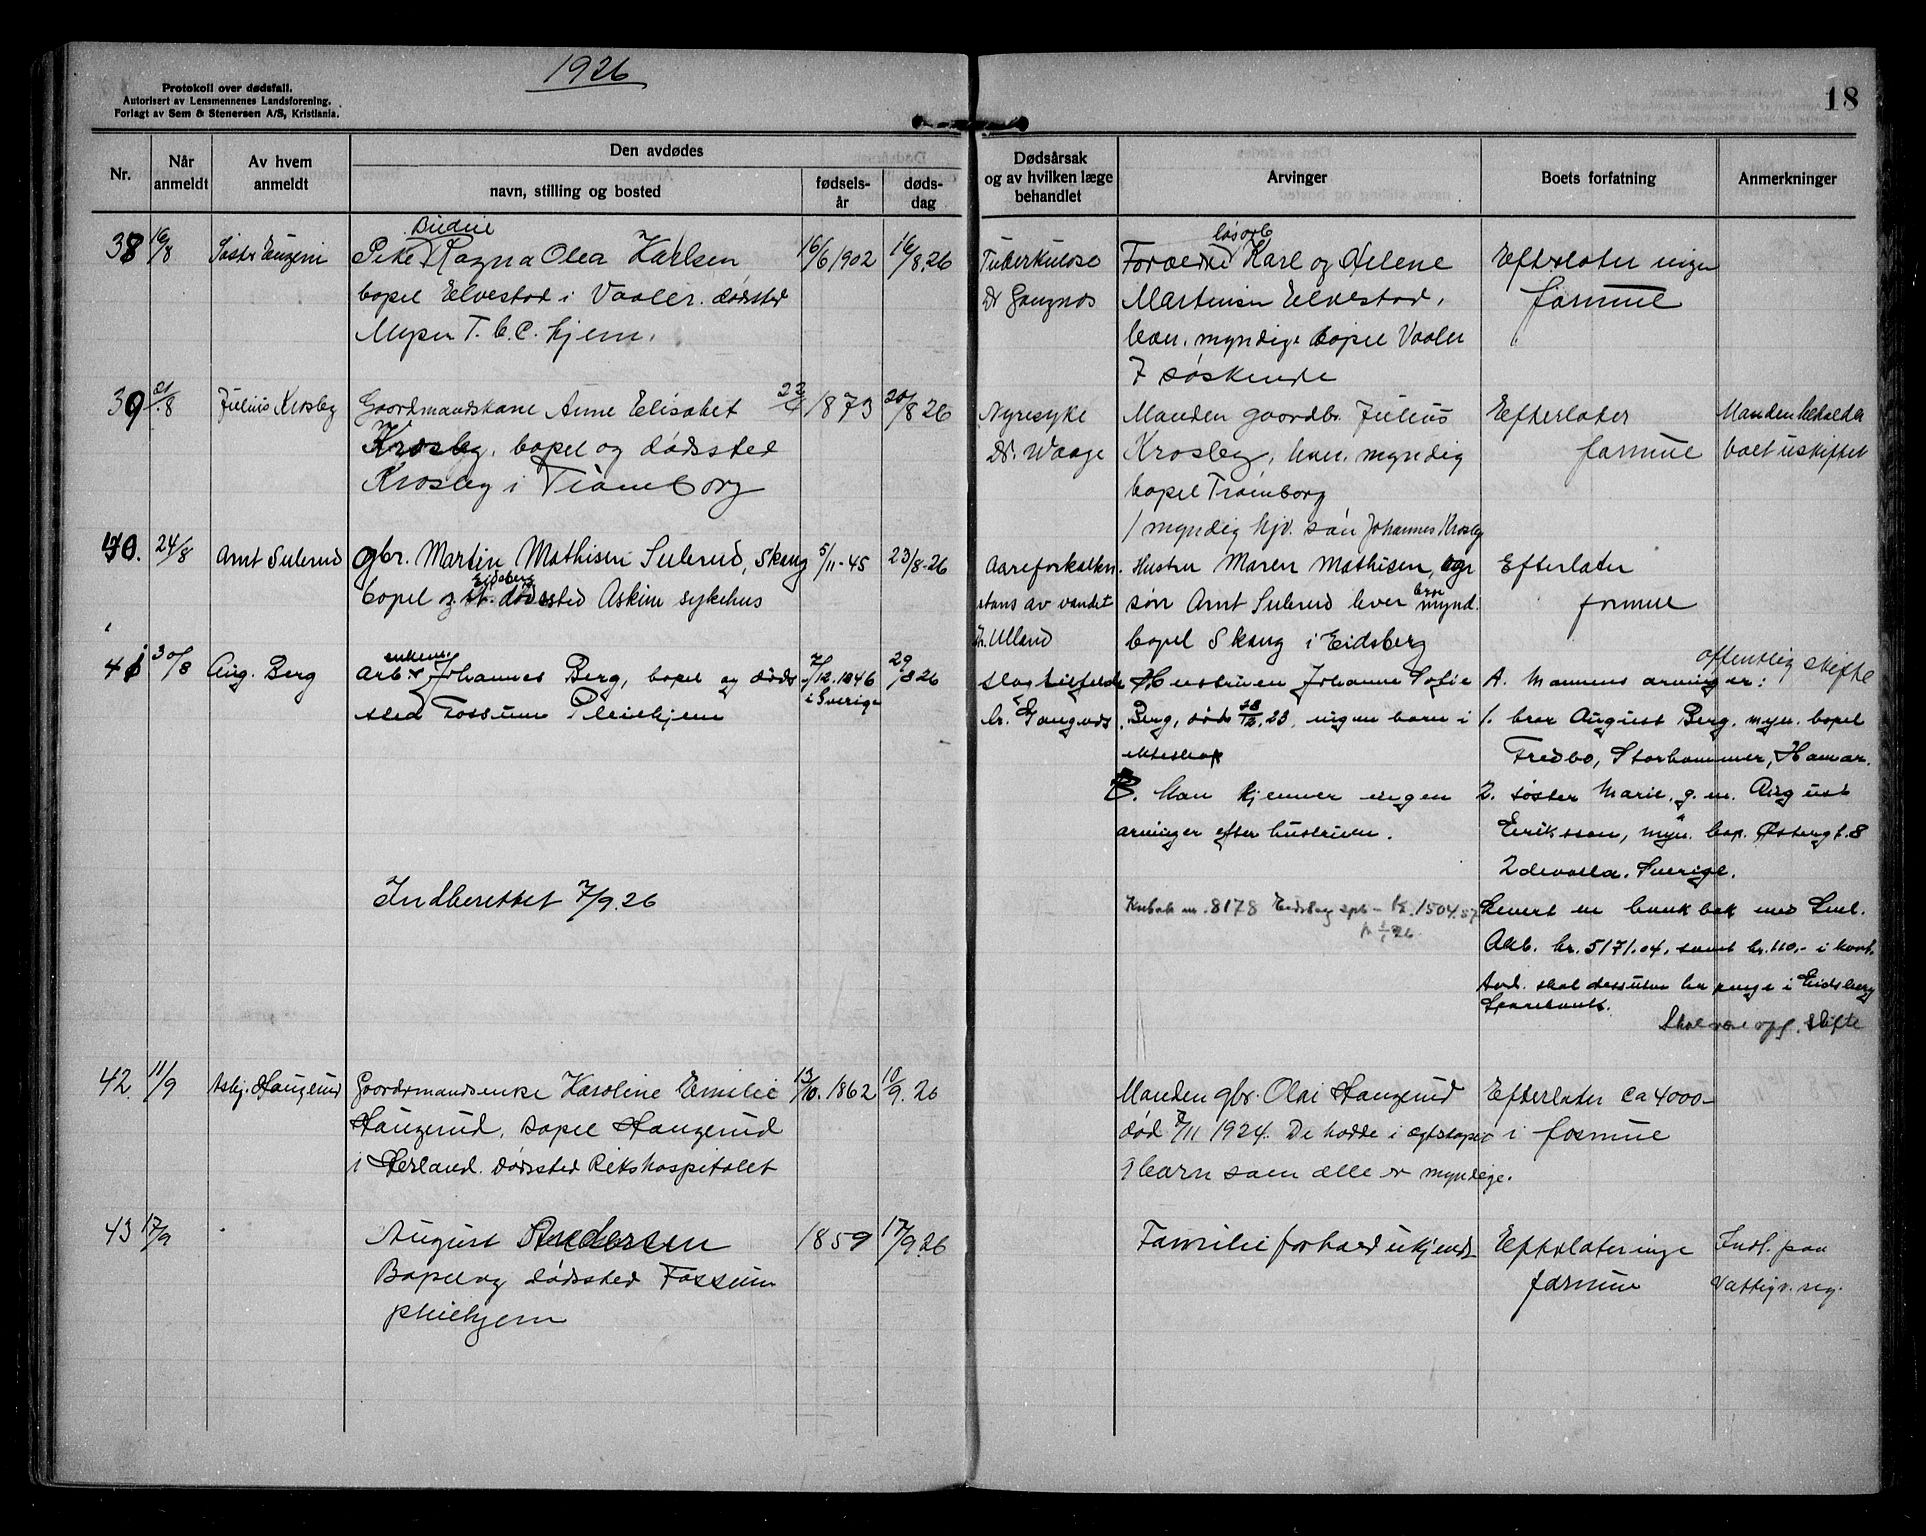 1926
Protokoll over dødsfall.
Autorisert av Lensmennenes Landsforening.
Forlagt av Sem & Stenersen A/S, Kristiania.
18
Nr.
Når anmeldt
Av hvem anmeldt
Den avdødes
navn, stilling og bosted
fødselsår
dødsdag
Dødsårsak og av hvilken læge behandlet
Arvinger
Boets forfatning
Anmerkninger
38 16/8 Søster Eugeni
Budeie
Pike Ragna Olea Karlsen
bopel Elvestad i Vaaler. dødsted
Mysen T.b.C. hjem.
16/6 1902 16/8.26
Tuberkulose
Dr Gangnøs
løsarb
Foreldre Karl og Helene
Martinsen Elvestad,
lever, myndige bopel Vaaler
7 søskende
Efterlater ingen
formue
39 21/8 Julius Krosby
Gaardmandskone Anne Elisabet
Krosby, bopel og dødssted
Krosby i Trømborg
22/4 1873 20/8 26
Nyresyke
Dr. Waage
Manden gaardbr. Julius
Krosby, lever, myndig
bopel Trømborg
1 myndig hjv. søn Johannes Krosby
Efterlater
formue
Manden beholder
boet uskiftet
40. 24/8 Arnt Sulerud
gbr. Martin Mathisen Sulerud, Skaug
Eidsberg
bopel dødssted Askim sykehus
5/11-45 23/8-26
Aareforkalkn.
stans av vandet
Dr. Ulland
Hustru Maren Mathisen, og
søn Arnt Sulerud lever mynd.
bopel Skaug i Eidsberg
Efterlater
formue
41 30/8 Aug. Berg
enkem.
Arb. Johannes Berg, bopel og døds
sted Fossum Pleiehjem
7/12.1846
i Sverige
29/8 26
Slagtilfelde
Dr. Gangnøs
Hustruen Johanne Sofie
Berg, død 28/12.23, ingen barn i
ekteskap
B. Man kjenner ingen
arvinger efter hustruen.
offentlig skifte
A. Mannens arvinger:
1. bror August Berg, myn. bopel
Fredbo, Storhammer, Hamar.
2. søster Marie, g.m. August
Eriksson, myn. bop. Østergt. 8
Udevalla. Sverige.
Indberettet 7/9.26
8178 Eidsberg spb - kr. 1504.57
Levert en bank bok med Sml.
Akb. kr. 5171.04, samt kr. 110,- i kont.
Avd. skal dessuten ha penge i Eidsberg
Sparebank.
Skal være off. skifte
42. 11/9 Asbj. Haugerud
Gaardmandsenke Karoline Emilie
Haugerud, bopel Haugerud
i Herland. dødssted Rikshospitalet
13/10. 1862 10/9. 26
Manden gbr. Olai Haugerud
død 7/11 1924. De hadde i egteskapet
9 barn som alle er myndige.
Efterlater ca 4000-
i formue
43 17/9
August Andersen
Bopel og dødssted Fossum
pleiehjem
1859 17/9.26
Familieforhold ukjendt
Efterlater inge
formue
Indl. paa
Fattigv. reg.